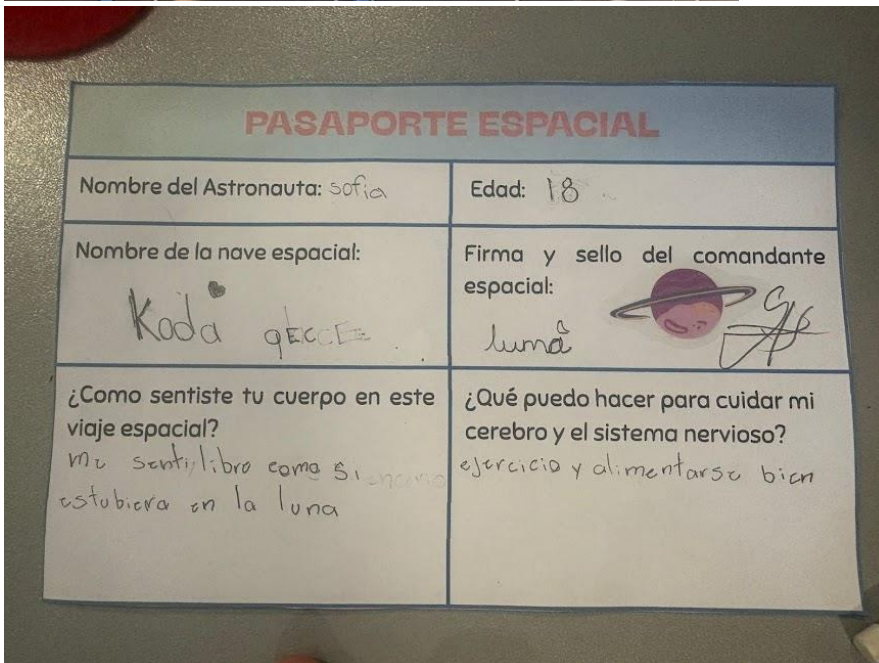 PASAPORTE ESPACIAL
Nombre del Astronauta: sofia
Edad: 18
Nombre de la nave espacial:
Koda
Firma y sello del comandante
espacial:
luma
¿Como sentiste tu cuerpo en este
viaje espacial?
me senti libre como si
estubiera en la luna
¿Qué puedo hacer para cuidar mi
cerebro y el sistema nervioso?
ejercicio y alimentarse bien